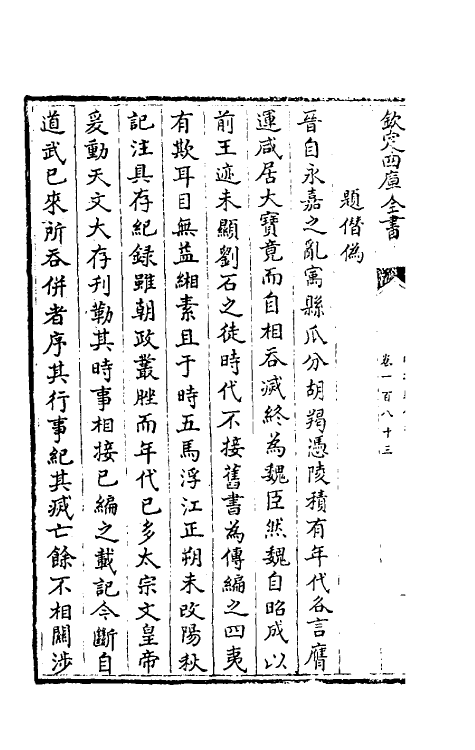 欽定四庫全書
卷一百八十三
題僣偽
晉自永嘉之亂寓縣瓜分胡羯憑陵積有年代各言膺
運咸居大寶竟而自相吞滅終為魏臣然魏自昭成以
前王迹未顯劉石之徒時代不接舊書為傳編之四夷
有欺耳目無益緗素且于時五馬浮江正朔未改陽秋
記注具存紀錄雖朝政叢脞而年代已多太宗文皇帝
爰動天文大存刊勒其時事相接已編之載記今斷自
道武已來所吞併者序其行事紀其滅亡餘不相關涉